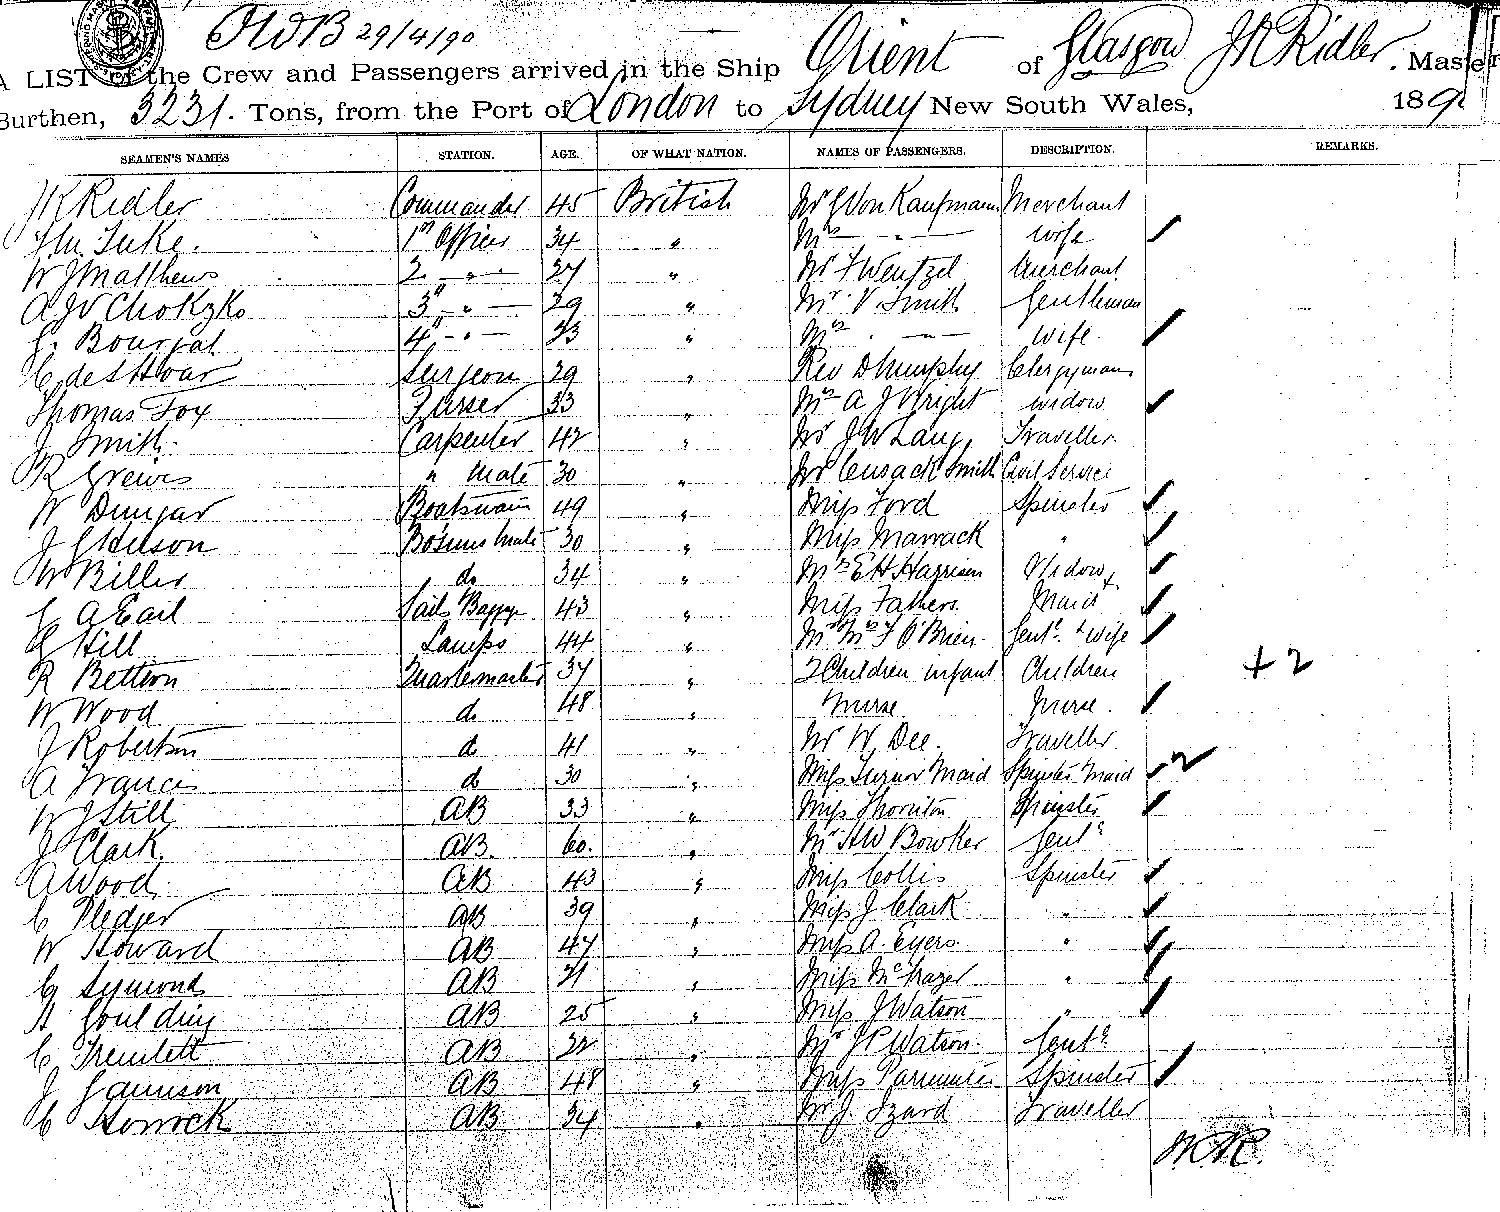 29/4/90
A LIST of the Crew and Passengers arrived in the Ship Orient of Glasgow J K Ridler. Master
Burthen, 3231. Tons, from the Port of London to Sydney New South Wales, 189
SEAMEN'S NAMES STATION. AGE. OF WHAT NATION. NAMES OF PASSENGERS. DESCRIPTION. REMARKS.
J K Ridler Commander 45 British Mr G Von Kaufmann Merchant
Tuke. 1st Officer 34 " Mrs — " — wife
W J Matthews 2 — " — 27 " Mr F Wentzel Merchant
A J V Chokzko 3rd — " — 29 " Mr V Smith Gentleman
Bourjal 4th — " — 23 " Mrs — " — wife
Surgeon 29 " Rev D Murphy Clergyman
Thomas Fox Purser 33 " Mrs A J Wright widow
J Smith. Carpenter 42 " Mr J W Lang, Traveller.
R Greives " Mate 30 " Mr Cusack Smith Civil Service
W Dungar Boatswain 49 " Miss Ford Spinster
J Bosuns Mate 30 " Miss Marrack "
W Biller do 34 " Mrs E H Harrison Widow +
G A Earl Sails Baggge 43 " Miss Fathers. Maid
G Hill Lamps 44 " Mr Mrs F O'Brien. Gent. & wife
R Bettern Quartermaster 37 " 2 Children infant Children + 2
W Wood do 48 " Nurse Nurse.
J Robertson do 41 " Mr W. Dee. Traveller
A Francis do 30 " Miss Turnor Maid Spinster Maid 2
W J Still AB 33 " Miss Thornton Spinster
J Clark AB. 60. " Mr H W Bowker Gent
A Wood AB 43 " Miss Collis Spinster
C Pledger AB 39 " Miss J Clark "
W Howard AB 47 " Miss A. Eyers "
G Symonds AB 21 " Miss "
H Goulding AB 25 " Miss J Watson "
C Tremlett AB 22 " Mr J P Watson Gent
J Jamison AB 48 " Miss Spinster
C Horrock AB 34 " Mr J. Izard Traveller